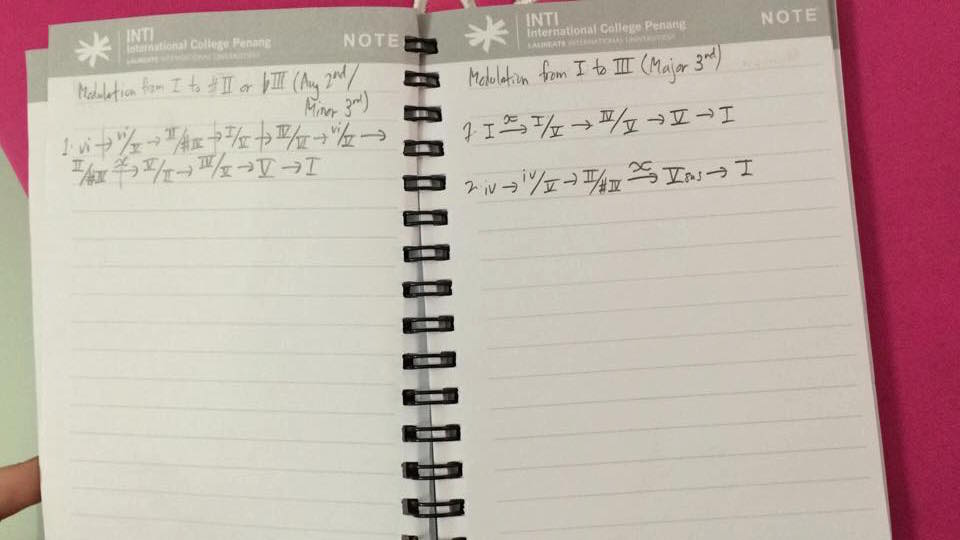 INTI
International College Penang
LAUREATE INTERNATIONAL UNIVERSITIES
NOTE
Modulation from I to #II or bIII (Aug 2nd/
Minor 3rd)
1. vi → vi/V → II/#IV → I/V → IV/VI → vi/V →
II/#IV x→ V/II → IV/V → V → I
INTI
International College Penang
LAUREATE INTERNATIONAL UNIVERSITIES
NOTE
Modulation from I to III (Major 3rd)
1. I x→ I/V → IV/V → V → I
2. iv → iv/V → II/#IV x→ Vsus → I